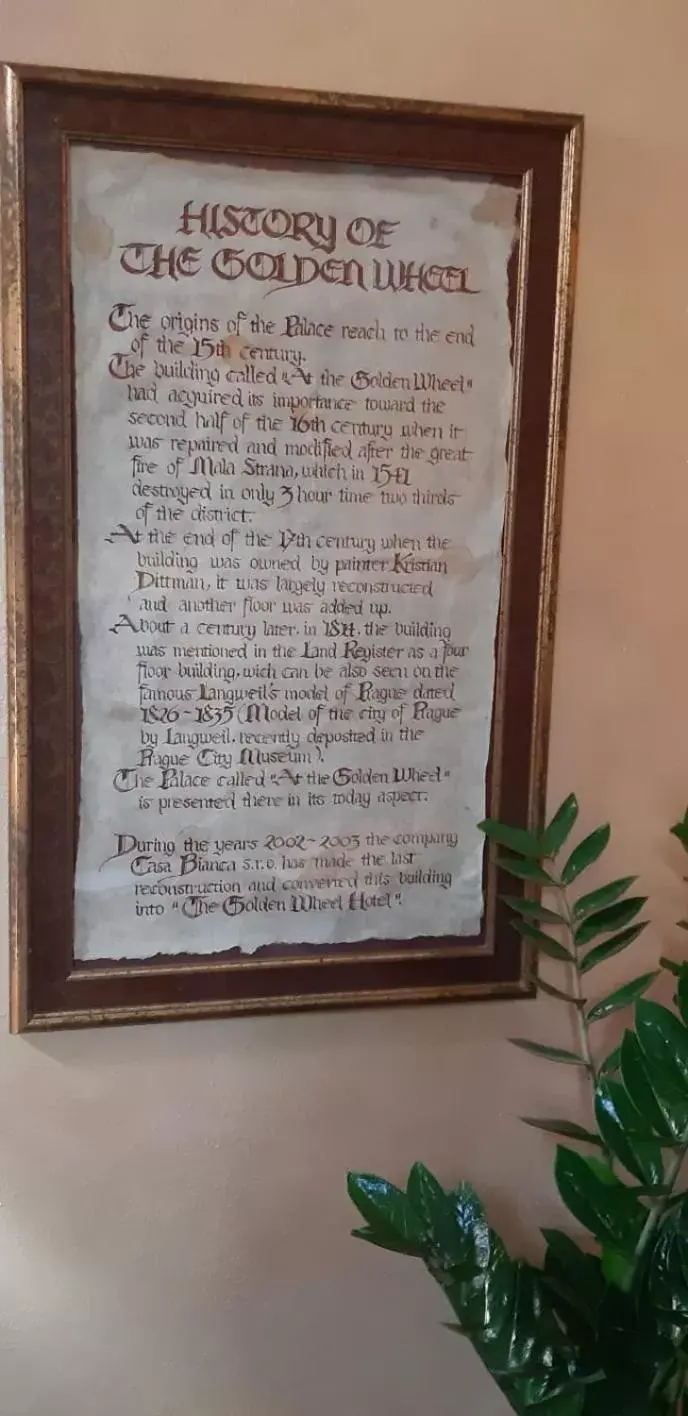 HISTORY OF
THE GOLDEN WHEEL
The origins of the Palace reach to the end
of the 15th century.
The building called "At the Golden Wheel"
had acquired its importance toward the
second half of the 16th century when it
was repaired and modified after the great
fire of Mala Strana, which in 1541
destroyed in only 3 hour time two thirds
of the district.
At the end of the 17th century when the
building was owned by painter Kristian
Dittman, it was largely reconstructed
and another floor was added up.
About a century later, in the building
was mentioned in the Land Register as a four
floor building, wich can be also seen on the
famous Langweil's model of Prague dated
1826-1835 (Model of the city of Prague
by Langweil, recently deposited in the
Prague City Museum).
The Palace called "At the Golden Wheel"
is presented there in its today aspect.
During the years 2002-2003 the company
Casa Bianca s.r.o. has made the last
reconstruction and converted this building
into "The Golden Wheel Hotel".